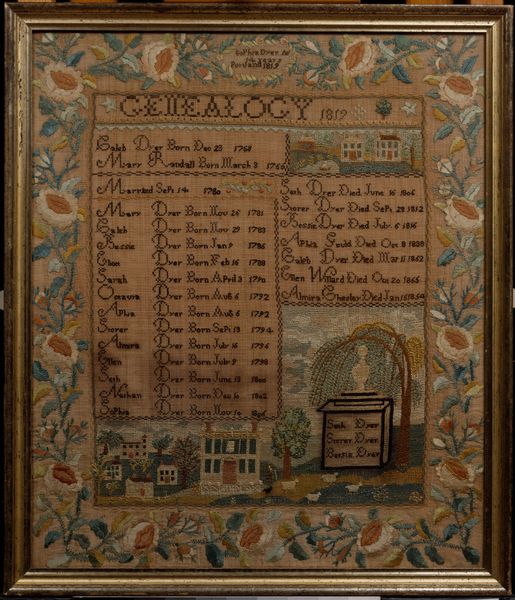 Sophia Dyer AE
14 years
Portland 1819
GENEALOGY 1819
Caleb Dyer Born Dec 23 1758
Mary Randall Born March 3 1766
Married Sept 14 1780
Mary Dyer Born Nov 26 1781
Caleb Dyer Born Nov 29 1783
Bessie Dyer Born Jan 9 1786
Dyer Born Feb 16 1788
Sarah Dyer Born April 3 1790
Octavia Dyer Born Aug 6 1792
Aphia Dyer Born Aug 6 1792
Storer Dyer Born Sept 13 1794
Almira Dyer Born July 16 1796
Ellen Dyer Born July 9 1798
Seth Dyer Born June 13 1800
Nathan Dyer Born Dec 10 1802
Sophia Dyer Born Nov 10
Seth Dyer Died June 16 1806
Storer Dyer Died Sept 28 1812
Bessie Dyer Died July 6 1816
Aphia Gould Died Oct 8 1838
Caleb Dyer Died Mar 11 1852
Ellen Willard Died Oct 20 1865
Almira Chesley Died Jan 15 1854
Seth Dyer
Storer Dyer
Bessie Dyer